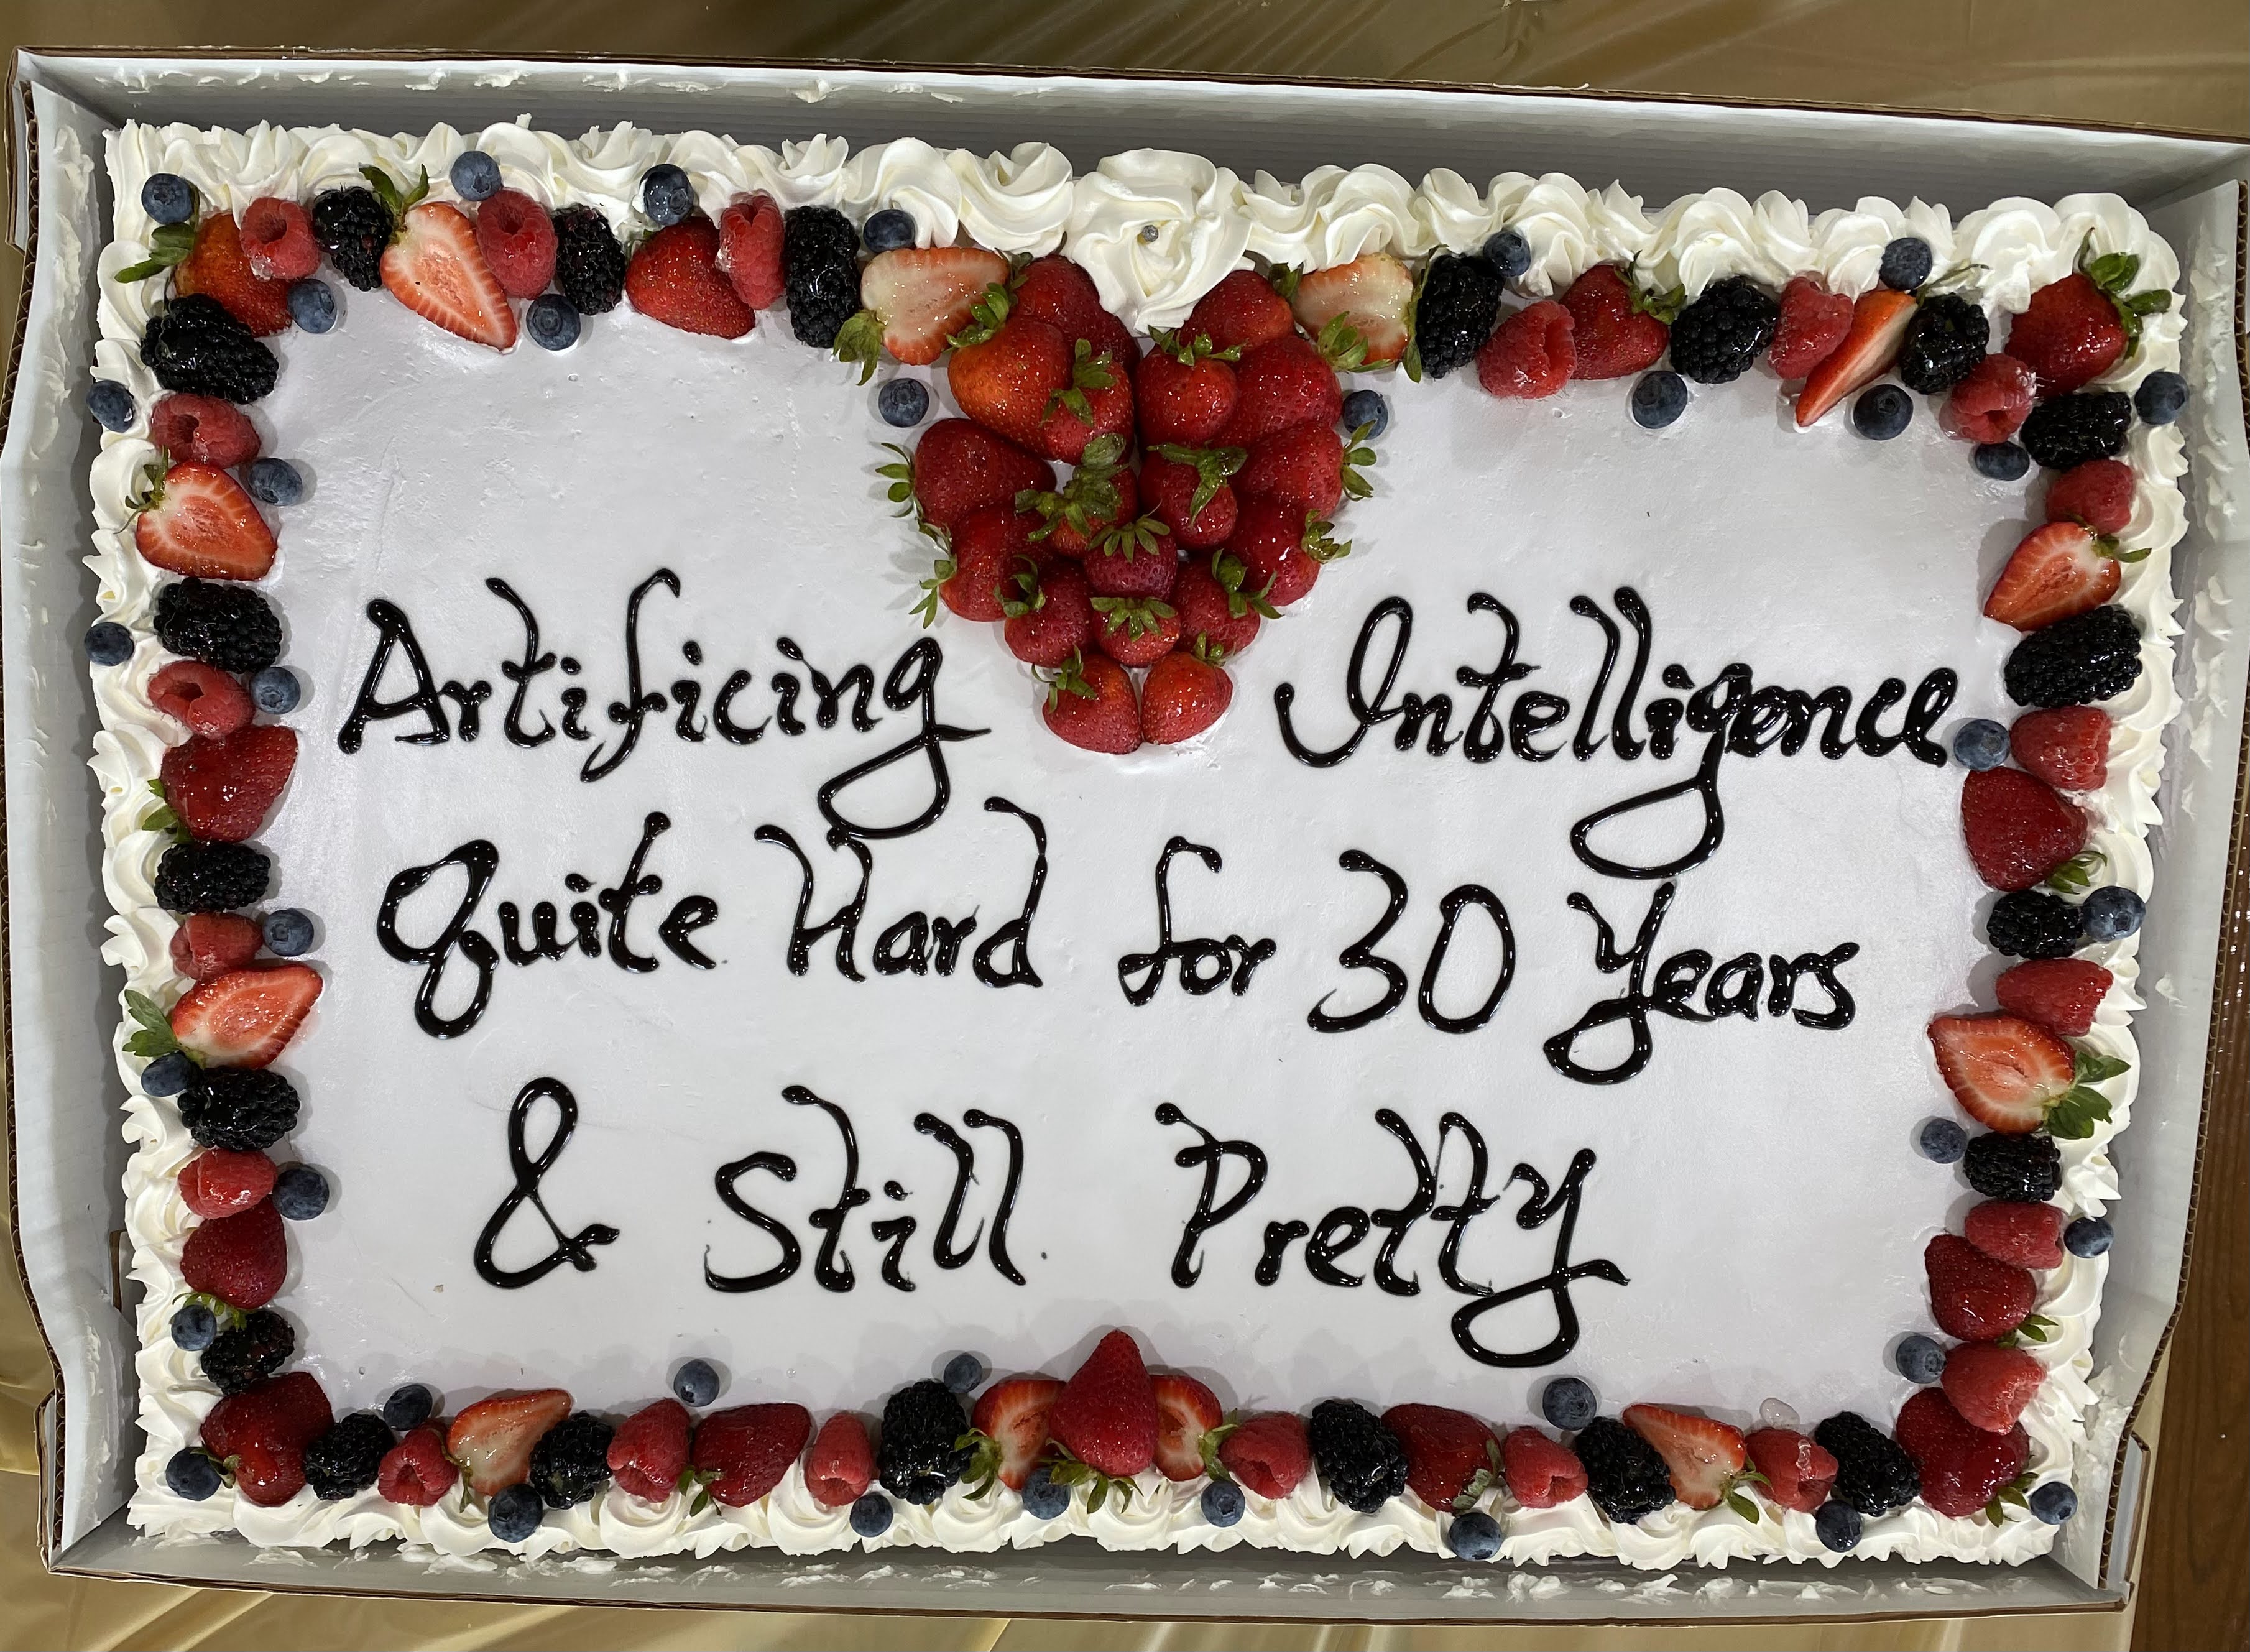 Artificing Intelligence
Quite Hard for 30 Years
& Still Pretty